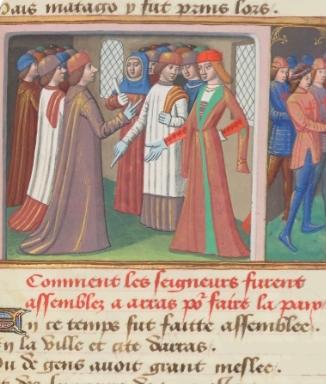 Mais matago y fut prins lors.
Comment les seigneurs furent
assemblez a arras po᷑ faire la paix
En ce temps fut faitte assemblee.
En la ville et cite darras.
Ou de gens avoit grant meslee.